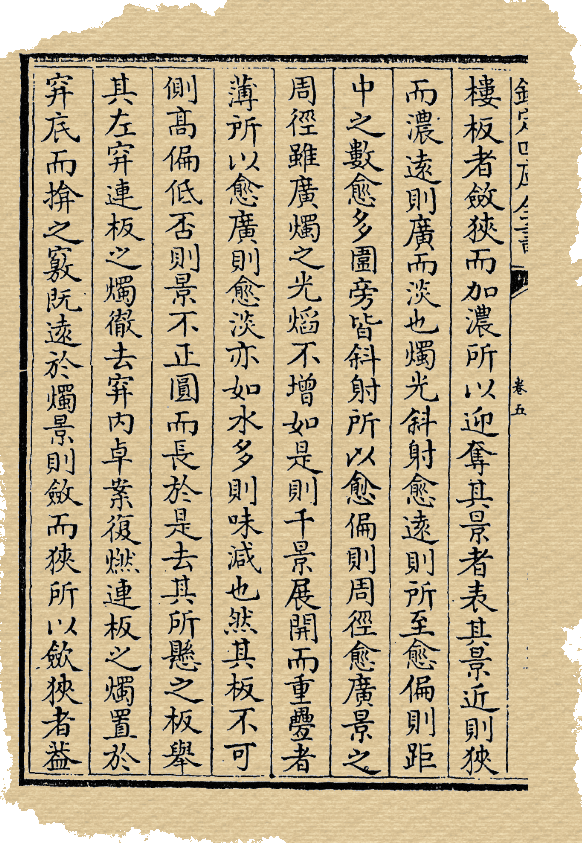 欽定四庫全書
卷五
樓板者斂狹而加濃所以迎奪其景者表其景近則狹
而濃遠則廣而淡也燭光斜射愈遠則所至愈偏則距
中之數愈多圍旁皆斜射所以愈偏則周徑愈廣景之
周徑雖廣燭之光熖不增如是則千景展開而重疊者
薄所以愈廣則愈淡亦如水多則味減也然其板不可
側髙偏低否則景不正圓而長於是去其所懸之板舉
其左穽連板之燭徹去穽內卓案復燃連板之燭置於
穽底而揜之竅既遠於燭景則斂而狹所以斂狹者葢